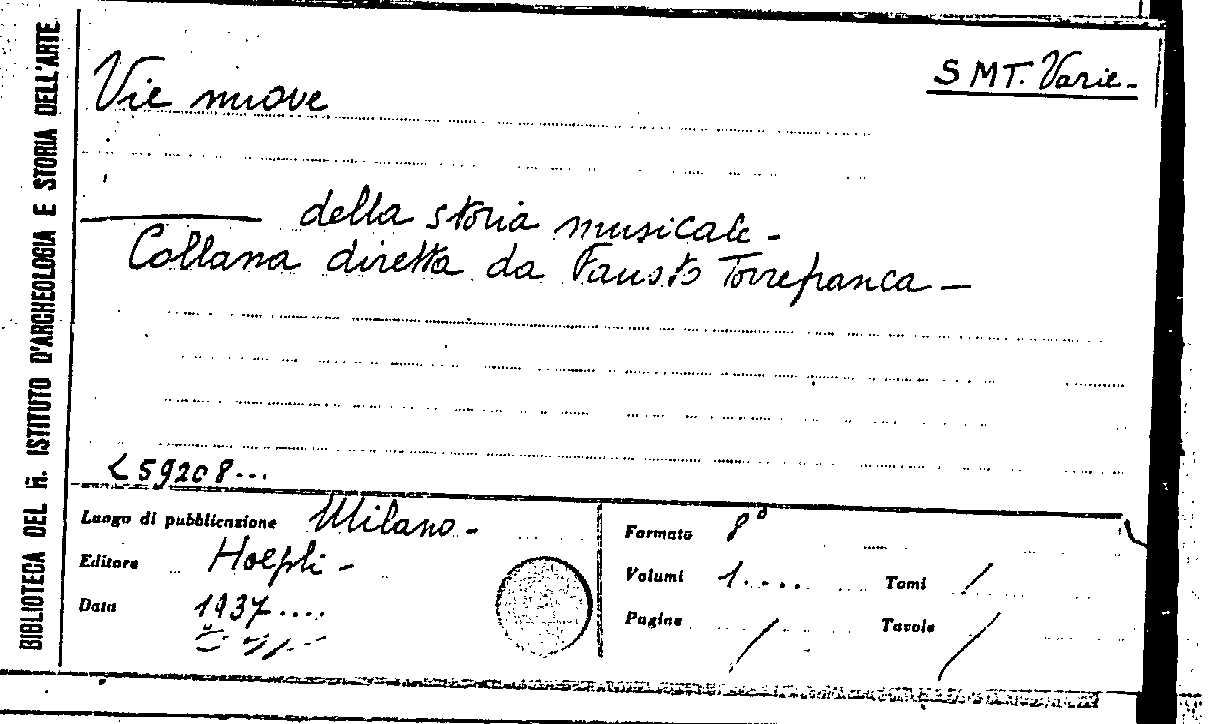 BIBLIOTECA DEL R. ISTITUTO D'ARCHEOLOGIA E STORIA DELL'ARTE
Vie nuove
SMT. Varie -
della storia musicale -
Collana diretta da Fausto Torrefranca -
59208...
Luogo di pubblicazione Milano -
Formato 8°
Editore Hoepli -
Volumi 1.... Tomi /
Data 1937....
Pagine / Tavole /